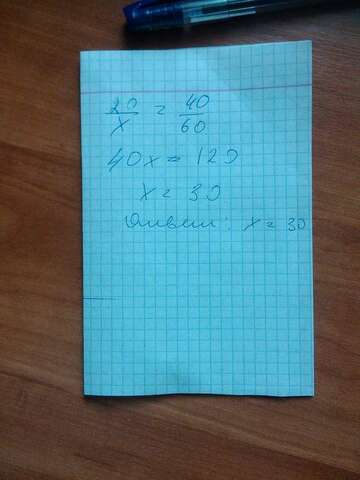 20/x = 40/60
40x = 120
x = 30
Ответ: x = 30